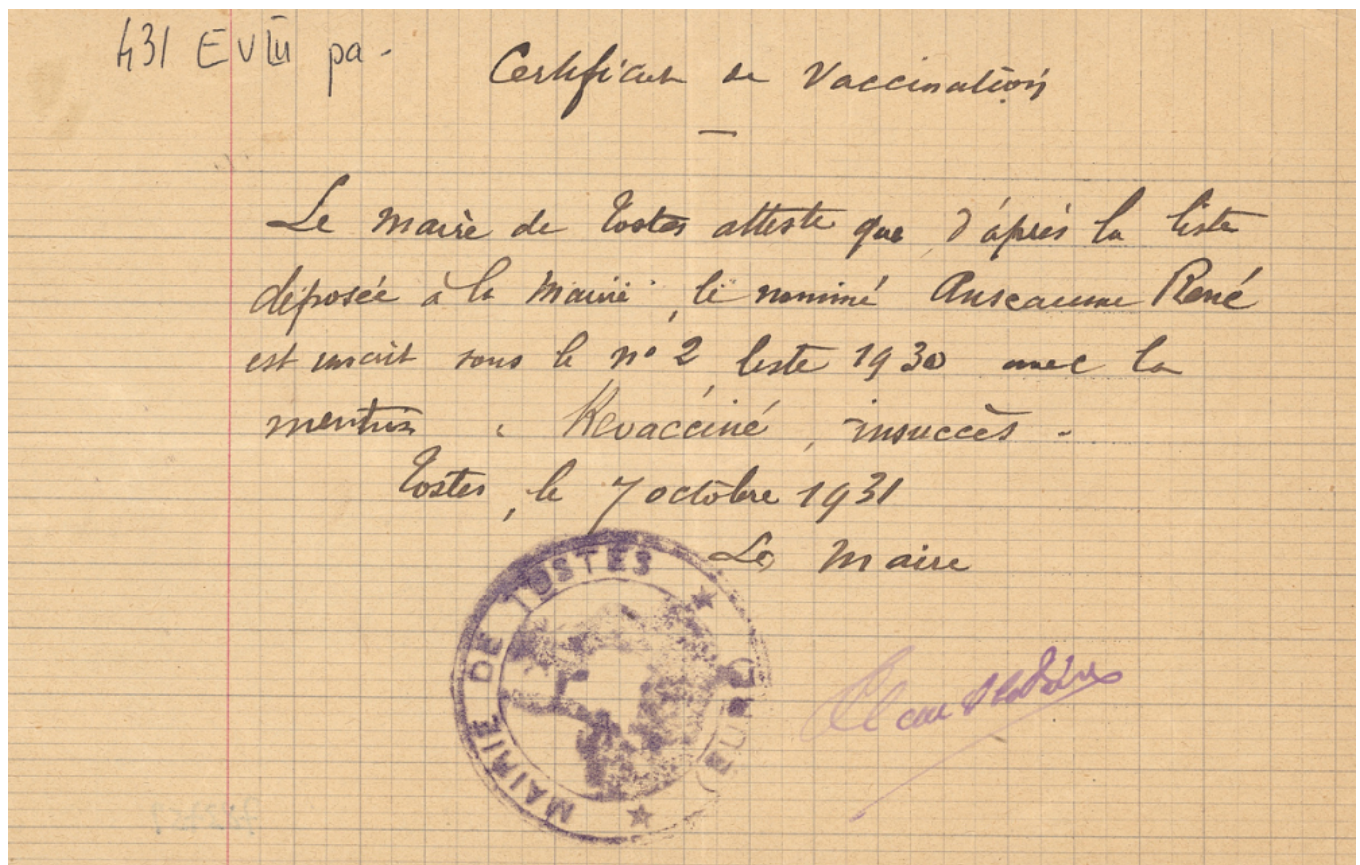 431 EVIII pa-
Certificat de Vaccination
Le maire de Tostes atteste que d'après la liste
déposée à la Mairie, le nommé Anseaume René
est inscrit sous le nº 2 liste 1930 avec la
mention : Revacciné, insuccès.
Tostes, le 7 octobre 1931
Le Maire
MAIRIE DE TOSTES (EURE)